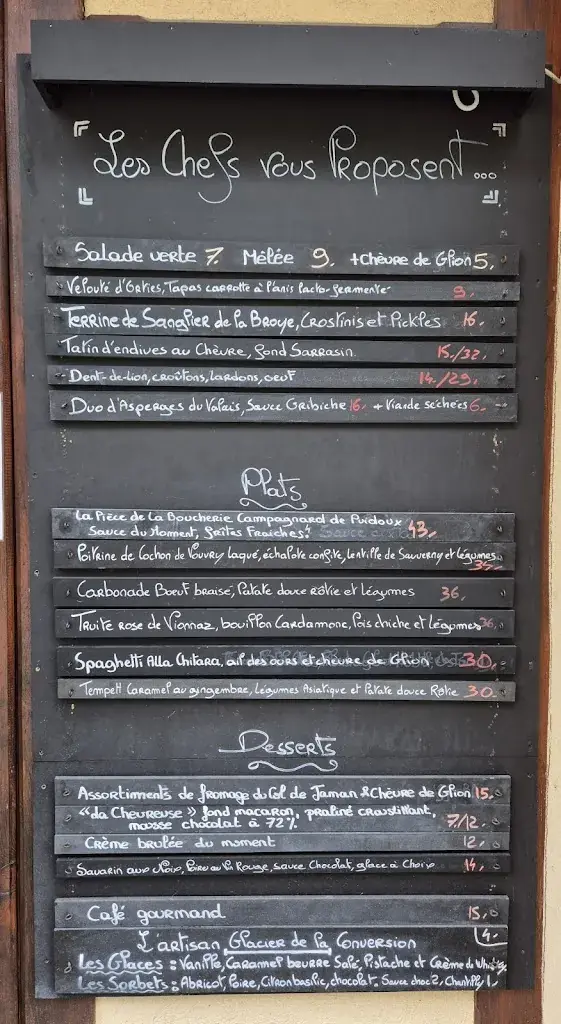 Les Chefs vous Proposent...
Salade verte 7. Mêlée 9. +Chèvre de Glion 5.
Velouté d'Orties, Tapas carrotte à l'anis lacto-fermenté 9.
Terrine de Sanglier de la Broye, Crostinis et Pickles 16.
Tatin d'endives au Chèvre, fond Sarrasin 15./32.
Dent-de-lion, croûtons, lardons, oeuf 14./29.
Duo d'Asperges du Valais, Sauce Gribiche 16. + Viande séchées 6.
Plats
La Pièce de La Boucherie Campagnard de Puidoux
Sauce du Moment, frîtes Fraîches! 43.
Poitrine de Cochon de Vouvry laqué, échalote confite, lentille de Sauverny et légumes
Carbonade Boeuf braisé, Patate douce rôtie et Légumes 36.
Truite rose de Vionnaz, bouillon Cardamone, Pois chiche et Légumes 36.
Spaghetti Alla Chitara, ail des ours et chèvre de Glion 30.
TempeH Caramel au gingembre, Légumes Asiatique et Patate douce Rôtie 30.
Desserts
Assortiments de fromage du Col de Jaman & Chèvre de Glion 15.
"da Cheureuse" fond macaron, praliné croustillant,
mousse chocolat à 72% 7/12.
Crème brulée du moment 12.
Savarin aux Noix, Poire au Vin Rouge, sauce Chocolat, glace à Choix 14.
Café gourmand 15.
L'artisan Glacier de la Conversion 4.
Les Glaces : Vanille, Caramel beurre Salé, Pistache et Crème de Whisky
Les Sorbets : Abricot, Poire, Citron basilic, chocolat. Sauce choc 2, Chantilly 1